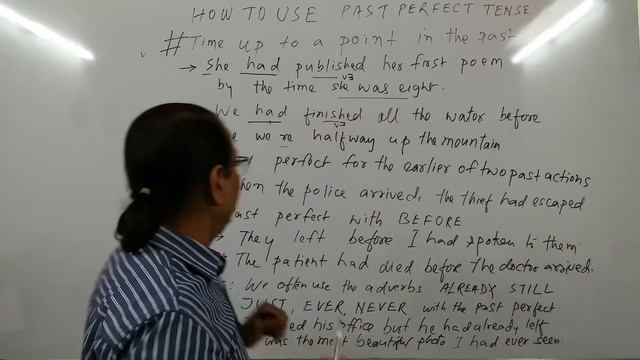 HOW TO USE PAST PERFECT TENSE
# Time up to a point in the past
→ She had published her first poem
v3
by the time she was eight.
We had finished all the water before
v3
we were halfway up the mountain.
perfect for the earlier of two past actions
the police arrived, the thief had escaped
perfect with BEFORE
→ They left before I had spoken to them.
The patient had died before The doctor arrived.
: We often use the adverbs ALREADY STILL
JUST, EVER, NEVER with the past perfect
his office but he had already left
was the most beautiful photo I had ever seen.